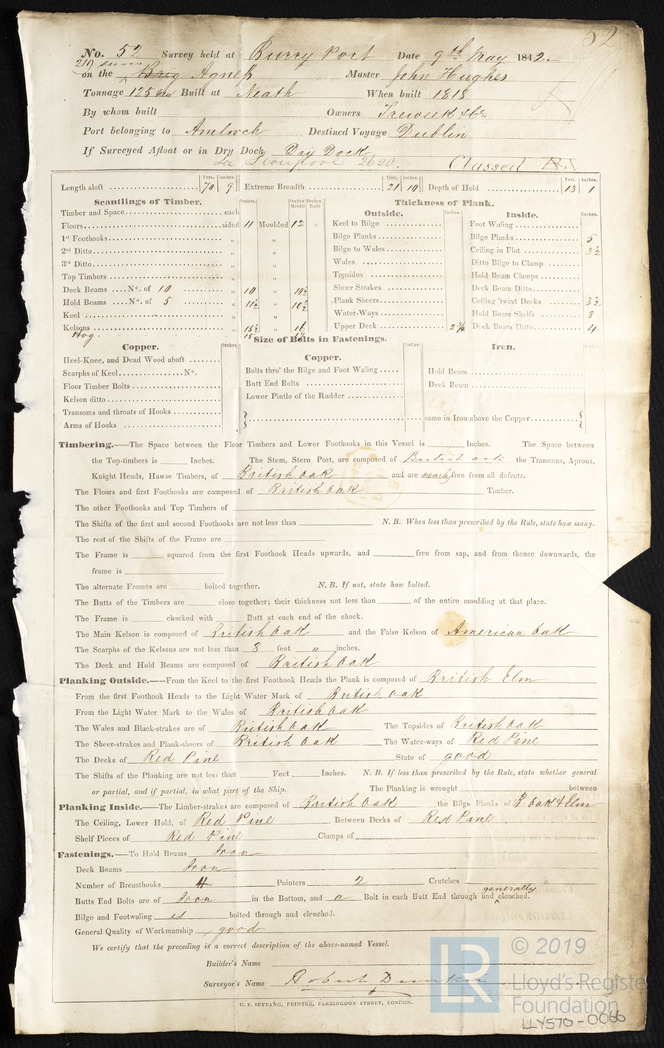 52
No. 52 Survey held at Burry Port Date 9th May 1842.
219 snow
on the Brig Agness Master John Hughes
Tonnage 125 Built at Neath When built 1818
By whom built Owners Treweek & Co
Port belonging to Amlwch Destined Voyage Dublin
If Surveyed Afloat or in Dry Dock Dry Dock
Liverpool 2620. Classed
Feet. Inches. Feet. Inches. Feet. Inches.
Length aloft 70 9 Extreme Breadth 21 10 Depth of Hold 13 1
Scantlings of Timber. Thickness of Plank.
Outside. Inside.
Timber and Space each
Floors sided 11 Moulded 12
1st Foothooks „ „
2nd Ditto „ „
3rd Ditto „ „
Top Timbers „ „
Deck Beams No. of 10 „ 10 „ 10½
Hold Beams No. of 5 „ 11½ „ 10½
Keel „ „
Kelsons „ 15½ „ 16
Keel to Bilge
Bilge Planks
Bilge to Wales
Wales „
Topsides
Sheer Strakes
Plank Sheers
Water-Ways
Upper Deck 2¾
Foot Waling
Bilge Planks 5
Ceiling in Flat 3½
Ditto Bilge to Clamp
Hold Beam Clamps
Deck Beam Ditto
Ceiling 'twixt Decks 3½
Hold Beam Shelfs 8
Deck Beam Ditto 4
Size of Bolts in Fastenings.
Copper. Copper. Iron.
Heel-Knee, and Dead Wood abaft
Scarphs of Keel No.
Floor Timber Bolts
Kelson ditto
Transoms and throats of Hooks
Arms of Hooks
Bolts thro' the Bilge and Foot Waling
Butt End Bolts
Lower Pintle of the Rudder
Hold Beam
Deck Beam
same in Iron above the Copper
Timbering.—The Space between the Floor Timbers and Lower Foothooks in this Vessel is Inches. The Space between
the Top-timbers is Inches. The Stem, Stern Post, are composed of British oak the Transoms, Aprons,
Knight Heads, Hawse Timbers, of British Oak and are nearly free from all defects.
The Floors and first Foothooks are composed of British Oak Timber.
The other Foothooks and Top Timbers of
The Shifts of the first and second Foothooks are not less than N. B. When less than prescribed by the Rule, state how many.
The rest of the Shifts of the Frame are
The Frame is squared from the first Foothook Heads upwards, and free from sap, and from thence downwards, the
frame is
The alternate Frames are bolted together. N. B. If not, state how bolted.
The Butts of the Timbers are close together; their thickness not less than of the entire moulding at that place.
The Frame is chocked with Butt at each end of the chock.
The Main Kelson is composed of British Oak and the False Kelson of American Oak
The Scarphs of the Kelsons are not less than 8 feet „ inches.
The Deck and Hold Beams are composed of British Oak
Planking Outside.—From the Keel to the first Foothook Heads the Plank is composed of British Elm
From the first Foothook Heads to the Light Water Mark of British Oak
From the Light Water Mark to the Wales of British Oak
The Wales and Black-strakes are of British Oak The Topsides of British Oak
The Sheer-strakes and Plank-sheers of British Oak The Water-ways of Red Pine
The Decks of Red Pine State of good
The Shifts of the Planking are not less than Feet Inches. N. B. If less than prescribed by the Rule, state whether general
or partial, and if partial, in what part of the Ship. The Planking is wrought between
Planking Inside.—The Limber-strakes are composed of British Oak the Bilge Planks of B Oak & Elm
The Ceiling, Lower Hold, of Red Pine Between Decks of Red Pine
Shelf Pieces of Red Pine Clamps of
Fastenings.—To Hold Beams Iron
Deck Beams Iron
Number of Breasthooks 4 Pointers 2 Crutches
generally
Butts End Bolts are of Iron in the Bottom, and a Bolt in each Butt End through and clenched.
Bilge and Footwaling is bolted through and clenched.
General Quality of Workmanship good
We certify that the preceding is a correct description of the above-named Vessel.
Builder's Name
Surveyor's Name Robert
C. F. SEYFANG, PRINTER, FARRINGDON STREET, LONDON.
LR © 2019
Lloyd's Register
Foundation
LLY570-0066